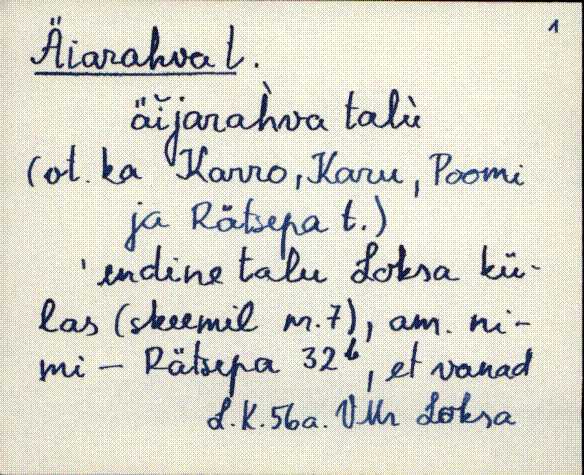 1
Äiarahva t.
äi̮jarahva talù
(ot. ka Karro, Karu, Poomi
ja Rätsepa t.)
'endine talu Loksa kü-
las (skeemil nr. 7), am. ni-
mi – Rätsepa 32b, et vanad
L.K. 56a. VMr Loksa